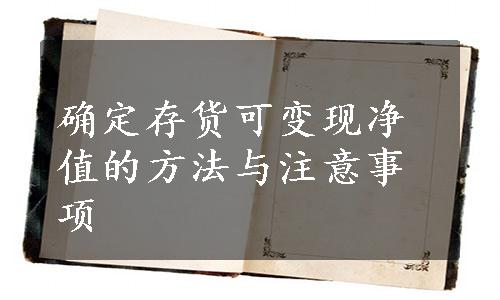 确定存货可变现净
值的方法与注意事
项